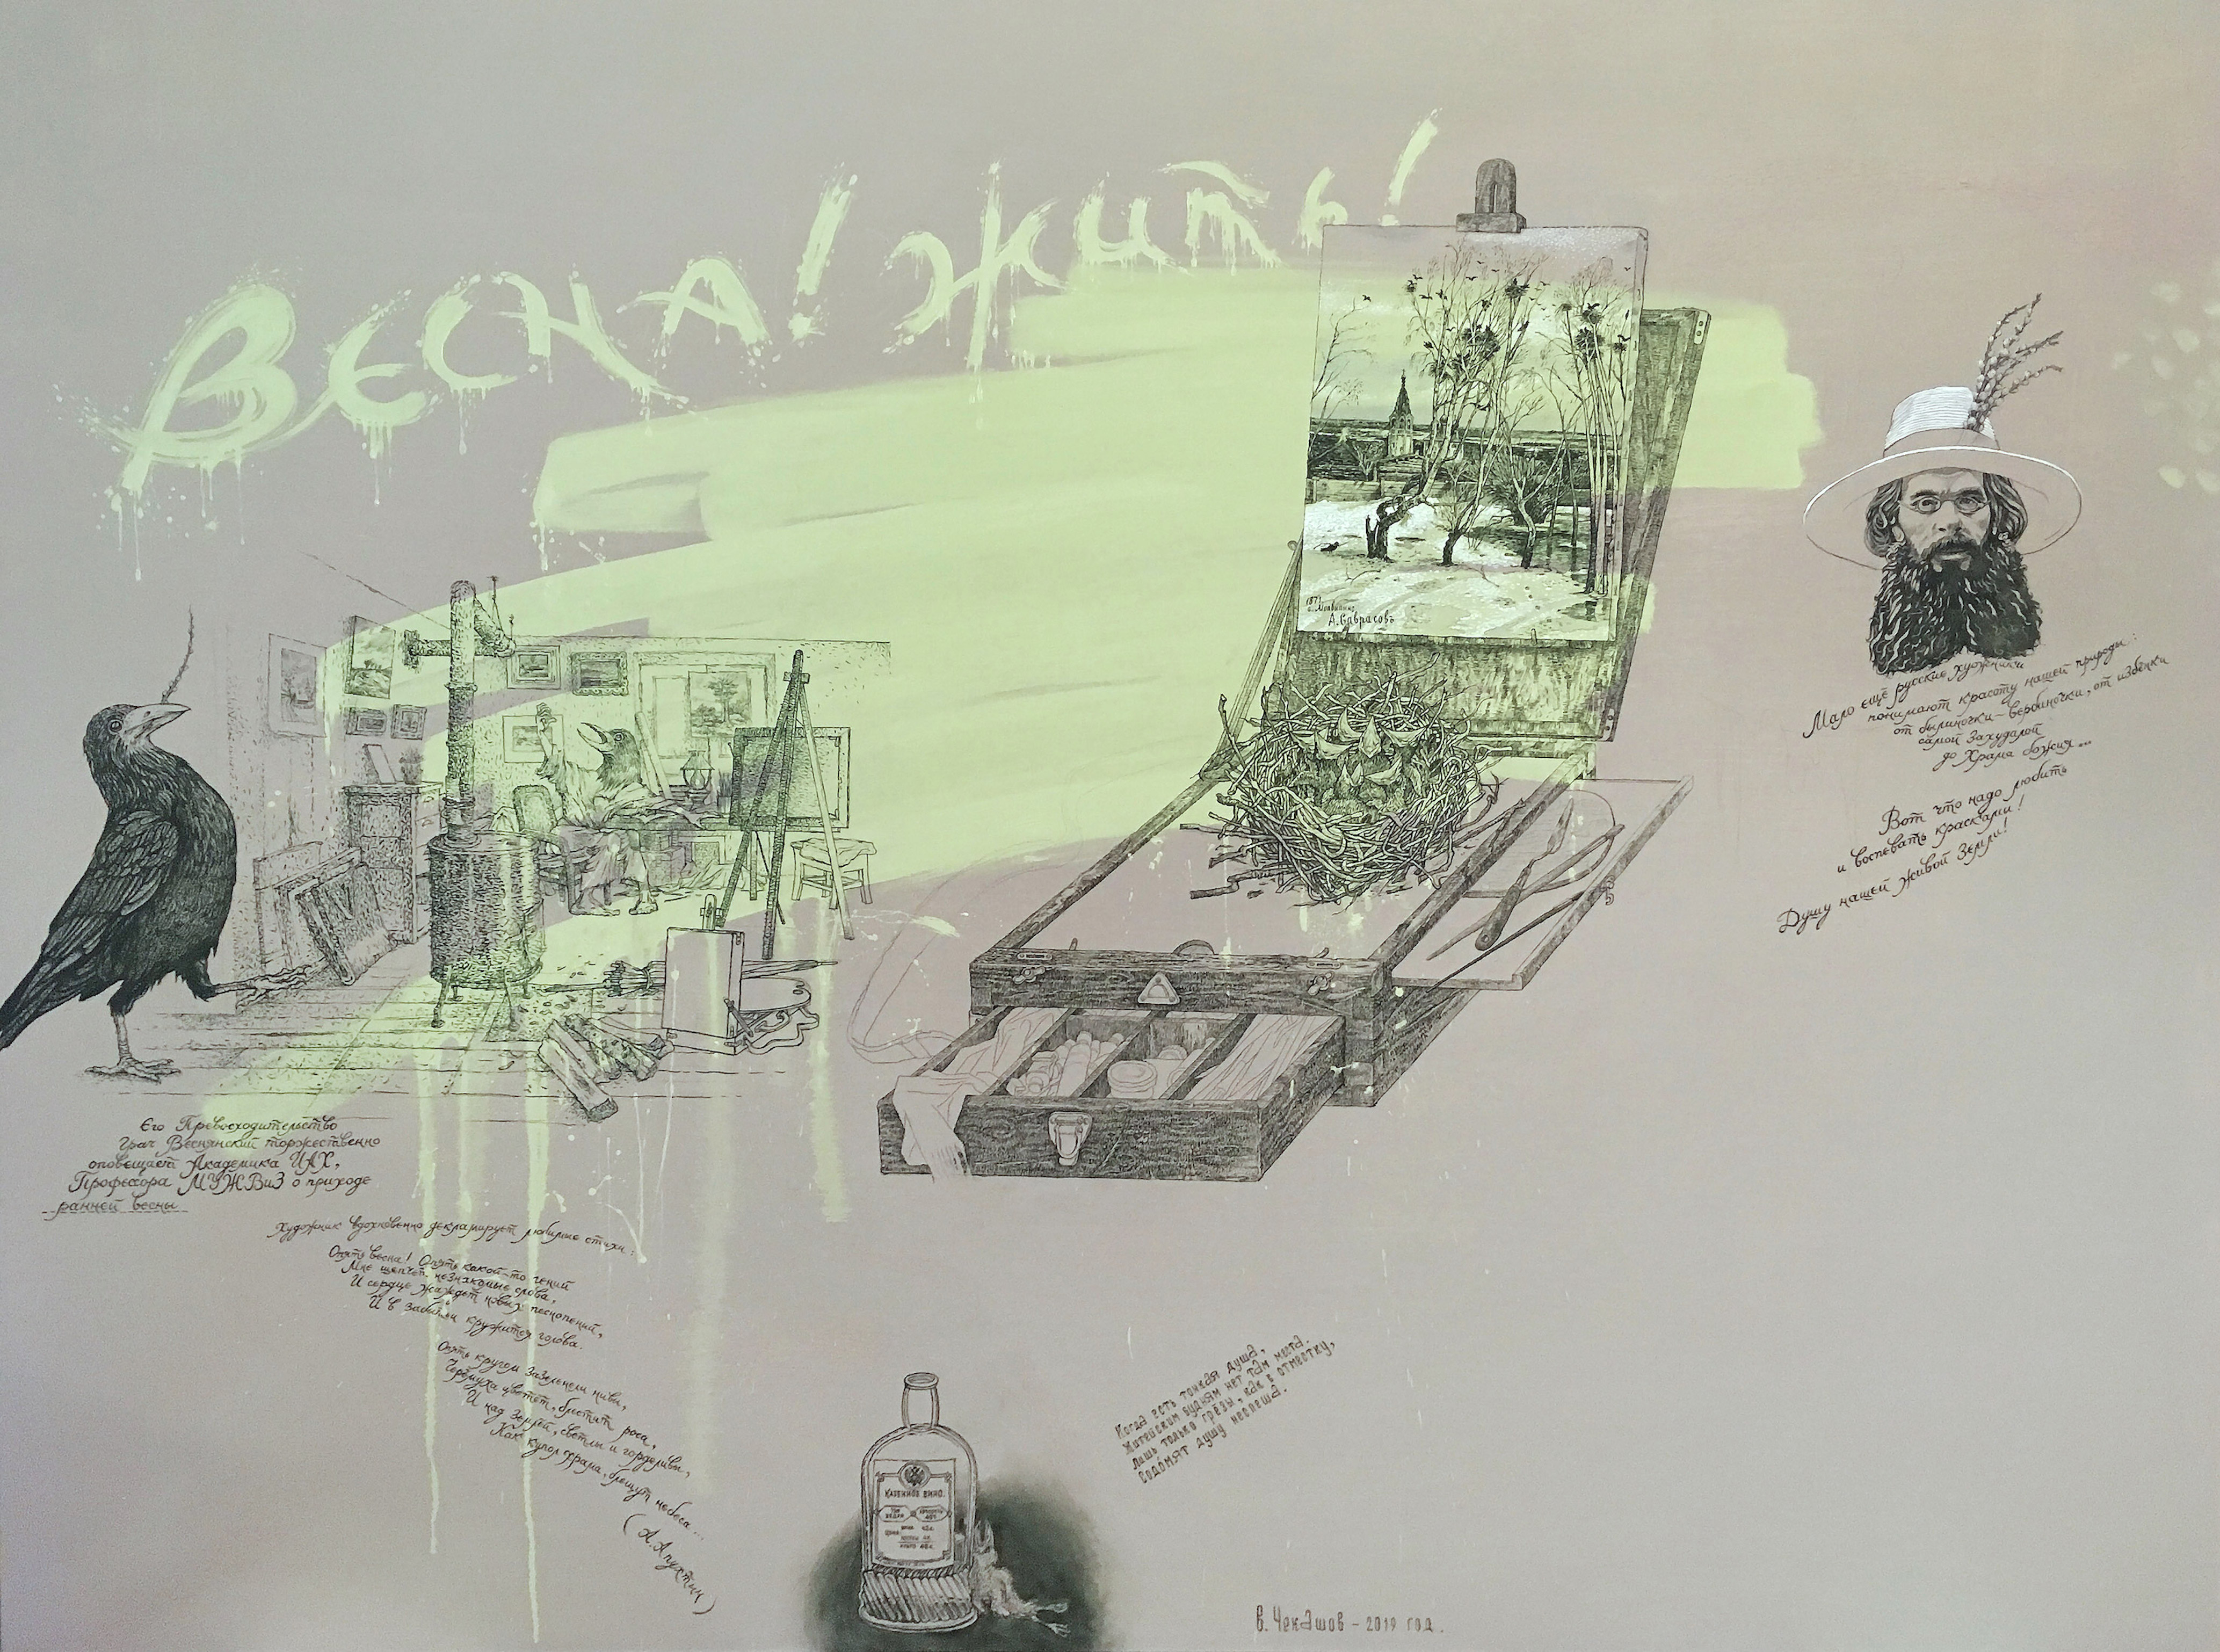 Весна! Жить!
1871
А. Саврасовъ
Мало ещё русские художники
понимают красоту нашей природы:
от былиночки-вербиночки, от избёнки
самой захудалой
до Храма божия...
Вот что надо любить
и воспевать красками!
Душу нашей живой Земли!
Его Превосходительство
Грач Веснянский торжественно
оповещает Академика ИАХ,
Профессора МУЖВиЗ о приходе
ранней весны
Художник вдохновенно декламирует любимые стихи:
Опять весна! Опять какой-то гений
Мне шепчет незнакомые слова,
И сердце жаждет новых песнопений,
И в забытьи кружится голова.
Опять кругом зазеленели нивы,
Черёмуха цветёт, блестит роса,
И над землёй, светлы и горделивы,
Как купол храма, блещут небеса...
(А. Апухтин)
Когда есть тонкая душа,
Житейским будням нет там места.
Лишь только грёзы, как в отместку,
Содомят душу неспеша.
Казенное вино.
В. Чекашов - 2019 год.